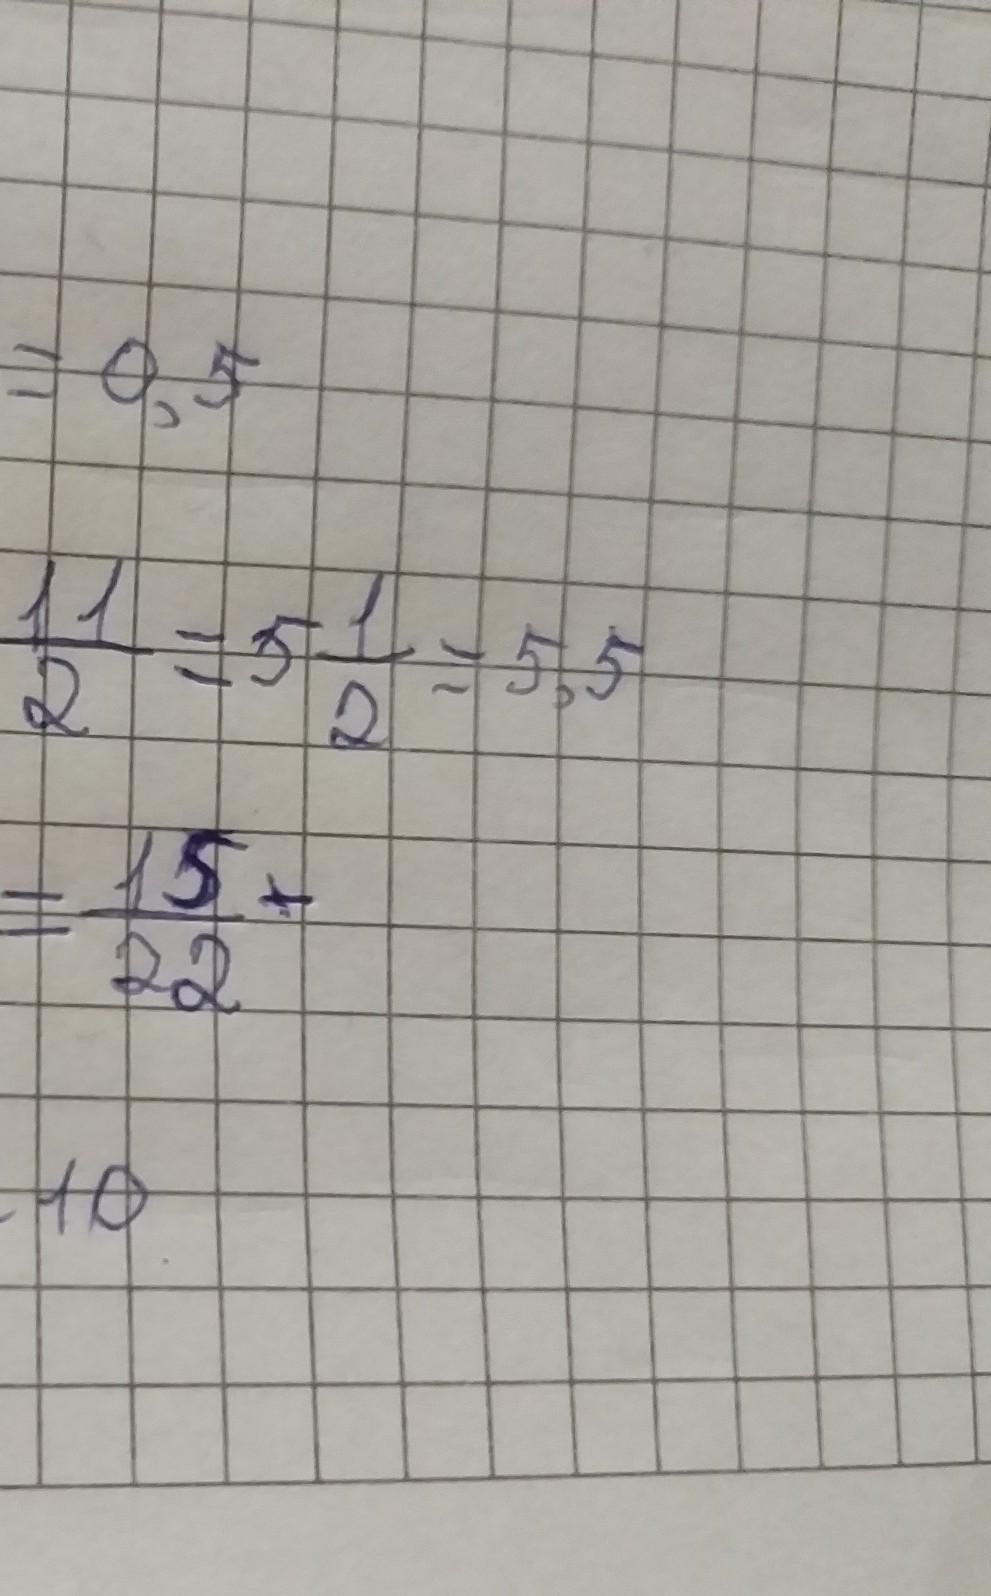 = 0,5
11/2 = 5 1/2 = 5,5
= 15/22 +
- 10